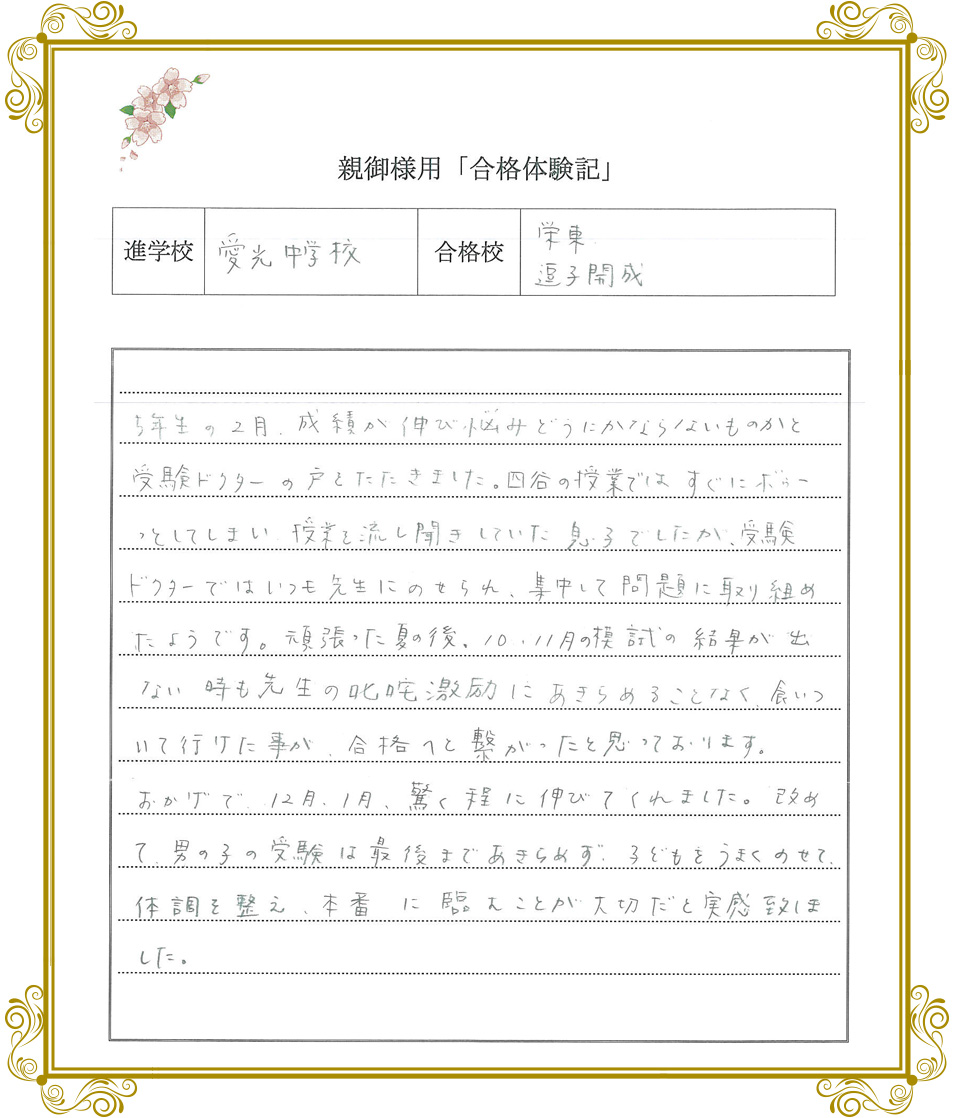 親御様用「合格体験記」
進学校 愛光中学校 合格校 栄東
逗子開成
5年生の2月、成績が伸び悩みどうにかならないものかと
受験ドクターの戸をたたきました。四谷の授業ではすぐにボゥー
っとしてしまい、授業を流し聞きしていた息子でしたが、受験
ドクターではいつも先生にのせられ、集中して問題に取り組め
たようです。頑張った夏の後、10・11月の模試の結果が出
ない時も先生の叱咤激励にあきらめることなく、食いつ
いて行けた事が、合格へと繋がったと思っております。
おかげで、12月、1月、驚く程に伸びてくれました。改め
て、男の子の受験は最後まであきらめず、子どもをうまくのせて、
体調を整え、本番に臨むことが大切だと実感致しま
した。